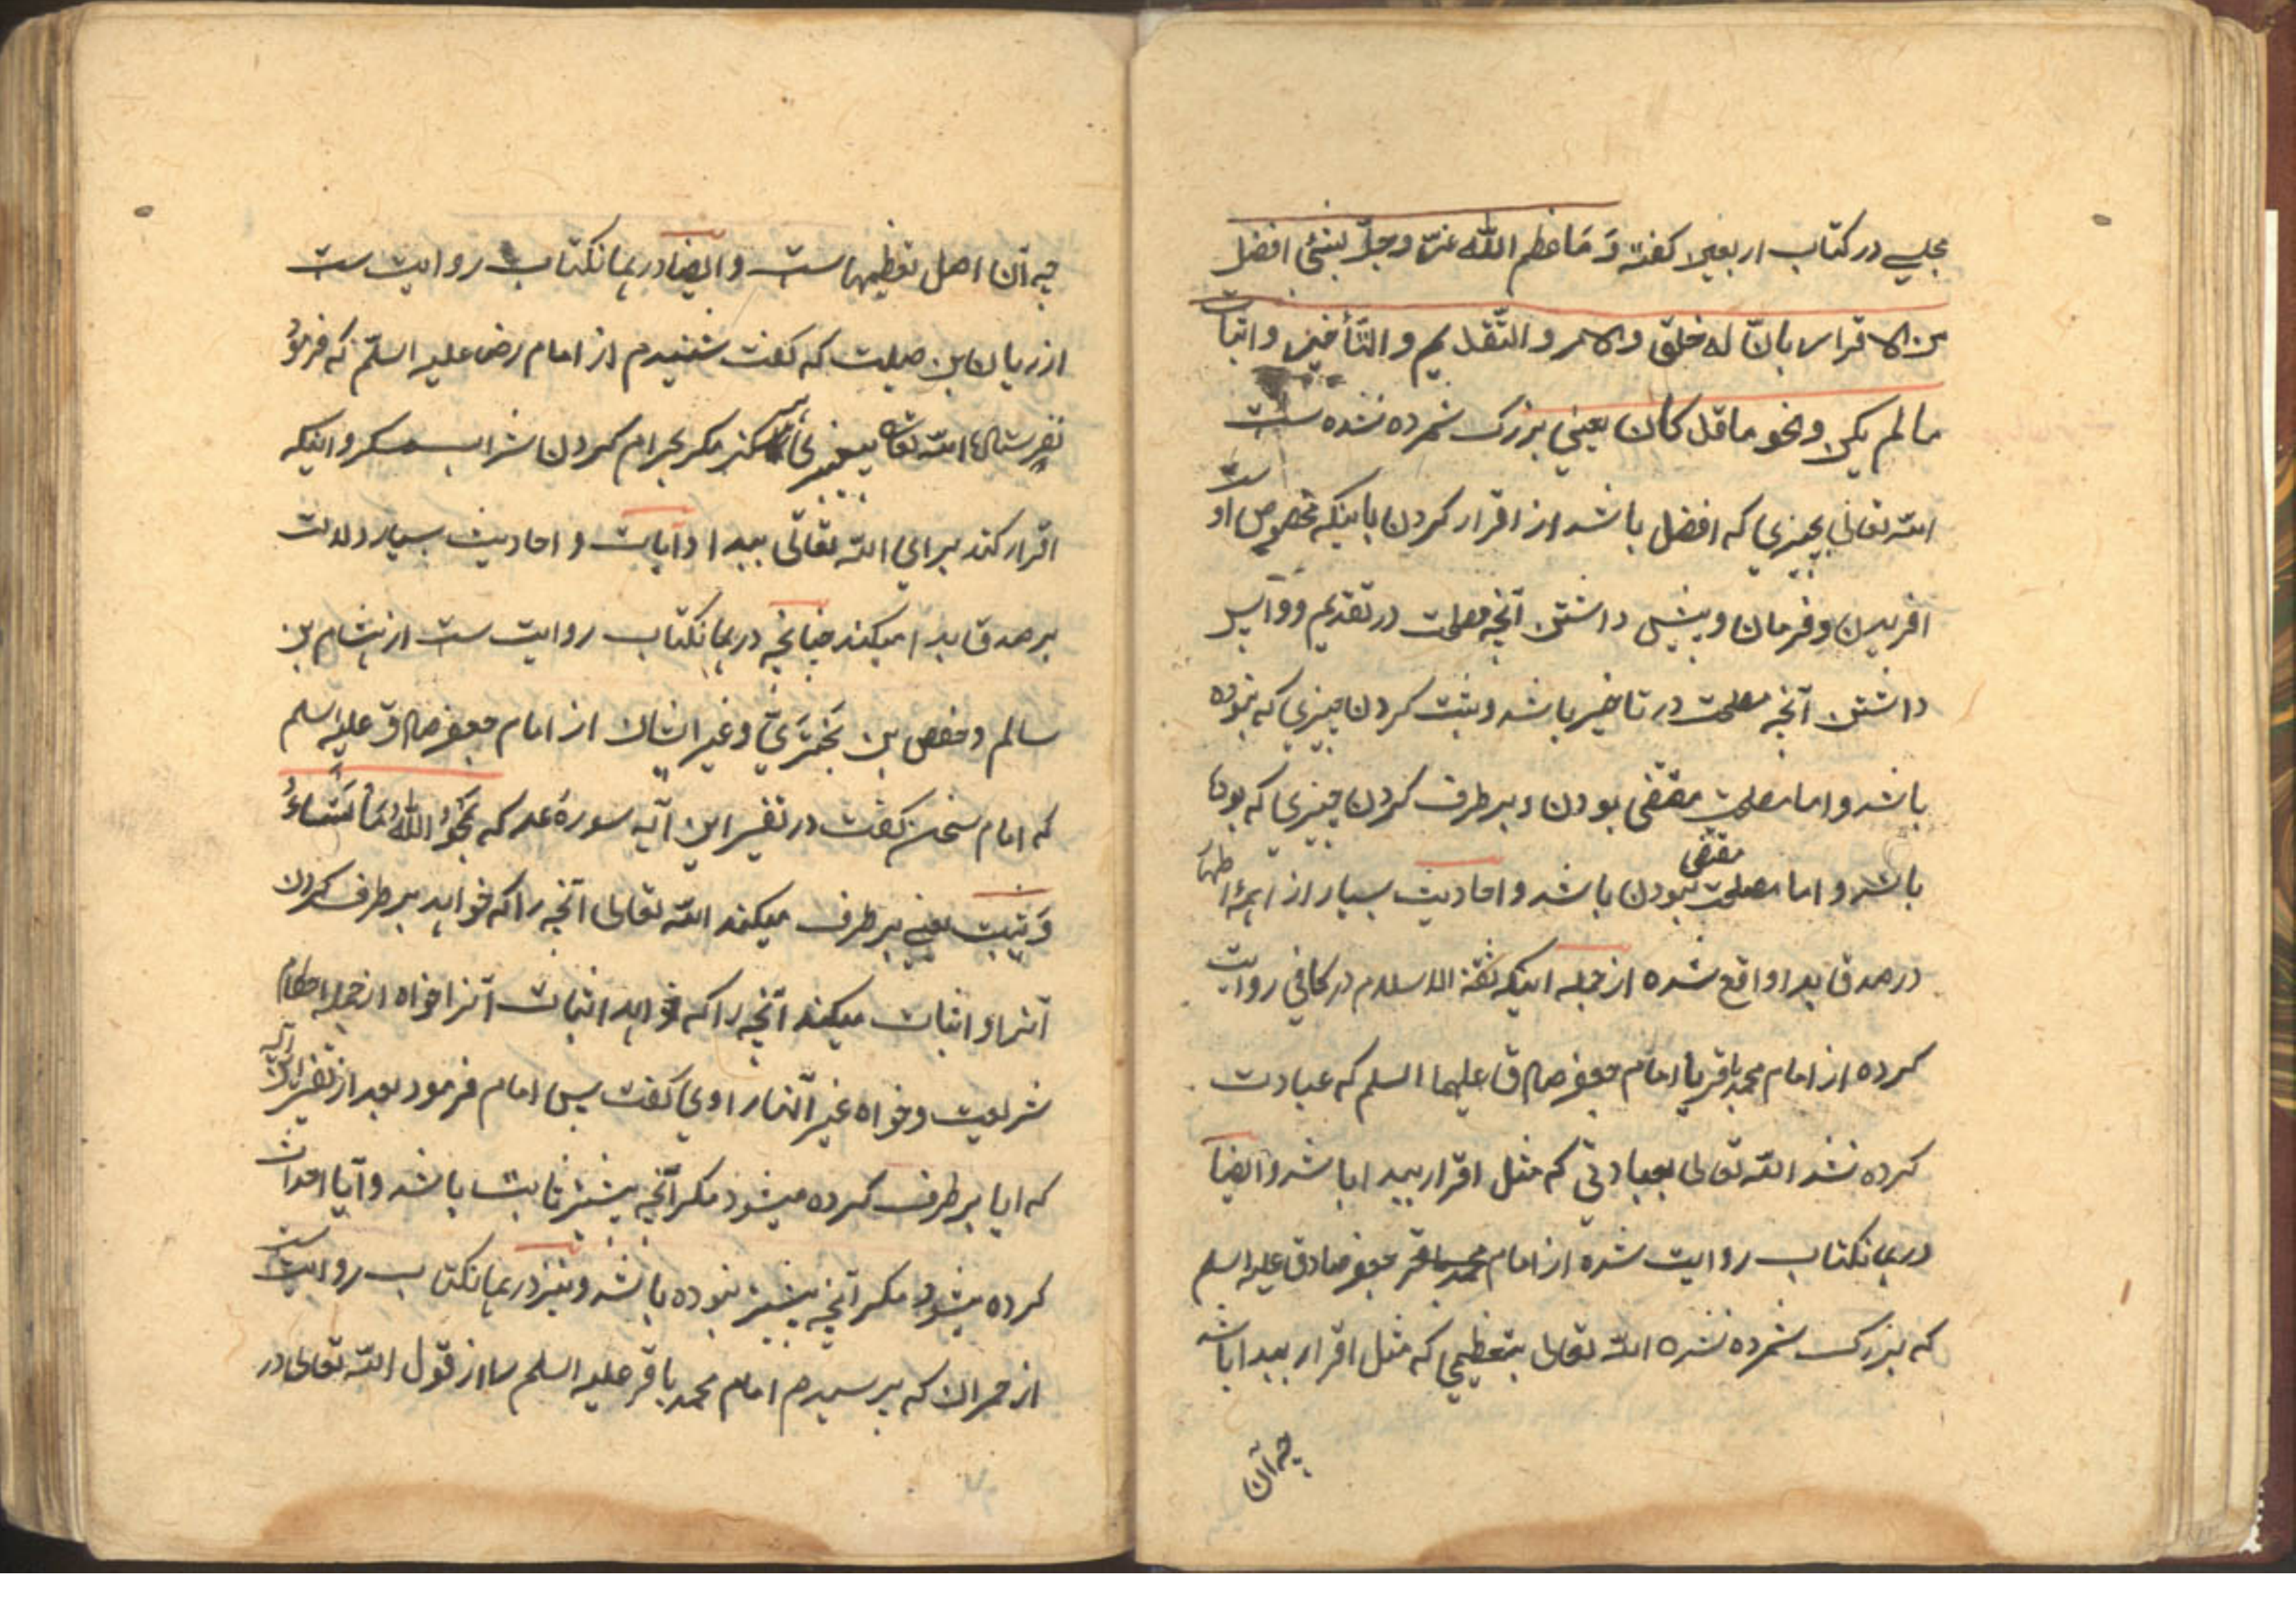 مجلسی در کتاب اربعین گفته وَ مَا عظم الله عزّ و جلّ بشئ افضل
من الاقرار بانّ له خلق والامر والتّقدیم والتّأخیر واثبات
مالم یکن ومحو ما قد کان یعنی بزرک شمرده نشده ست
الله تعالی بچیزی که افضل باشد از اقرار کردن باینکه مخصوص اوست
افریدن وفرمان وپیش داشتن آنچه مصلحت در تقدیم و واپس
داشتن آنچه مصلحت در تاخیر باشد وثبت کردن چیزی که نبوده
باشد واما مصلحت مقتضی بودن وبرطرف کردن چیزی که بوده
باشد واما مصلحت مقتضی نبودن باشد واحادیث بسیار از ایمهٔ اطهار
در صدق بدا واقع شده از جمله اینکه ثقة الاسلام در کافی روایت
کرده از امام محمد باقر یا امام جعفر صادق علیهما السلم که عبادت
کرده نشد الله تعالی بعبادتی که مثل اقرار ببدا باشد وایضاً
در همانکتاب روایت شده از امام جعفر صادق علیه السلم
که بزرک شمرده نشده الله تعالی بتعظیمی که مثل اقرار ببدا باشد
چه آن
چه آن اصل تعظیمهاست وایضا در همانکتاب روایت ست
از ریان بن صلت که گفت شنیدم از امام رضی علیه السلّم که فرمود
نفرستاد الله تعالی پیغمبری هرگز مکر بحرام کردن شراب مسکر واینکه
اقرار کند برای الله تعالی ببدا وآیات و احادیث بسیار دلالت
بر صدق بدا میکند چنانچه در همانکتاب روایت ست از هشام بن
سالم وحفص بن بَخْتَریّ وغیر ایشان از امام جعفر صادق علیه السلم
که امام سخن گفت در تفسیر این آیه سورهٔ رعد که یَمْحُو اللهُ مَا یَشَاءُ
وَ یثبت یعنی برطرف میکند الله تعالی آنچه را که خواهد برطرف کردن
آنرا و اثبات میکند آنچه را که خواهد اثبات آنرا خواه از جمله احکام
شریعت وخواه غیر آنها راوی گفت پس امام فرمود بعد از تفسیر این آیه
که ایا برطرف کرده میشود مکر آنچه پیشتر ثابت باشد وآیا احداث
کرده میشود مکر آنچه پیشتر نبوده باشد ونیز در همانکتاب روایت ست
از حمران که پرسیدم امام محمد باقر علیه السلم را از قول الله تعالی در